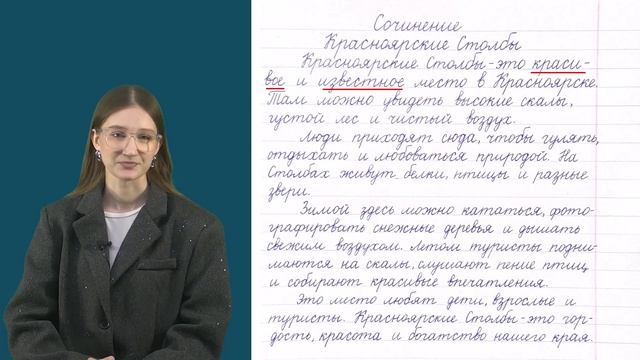 Сочинение
Красноярские Столбы
Красноярские Столбы-это краси-
вое и известное место в Красноярске.
Там можно увидеть высокие скалы,
густой лес и чистый воздух.
Люди приходят сюда, чтобы гулять,
отдыхать и любоваться природой. На
Столбах живут белки, птицы и разные
звери.
Зимой здесь можно кататься, фото-
графировать снежные деревья и дышать
свежим воздухом. Летом туристы подни-
маются на скалы, слушают пение птиц
и собирают красивые впечатления.
Это место любят дети, взрослые и
туристы. Красноярские Столбы-это гор-
дость, красота и богатство нашего края.